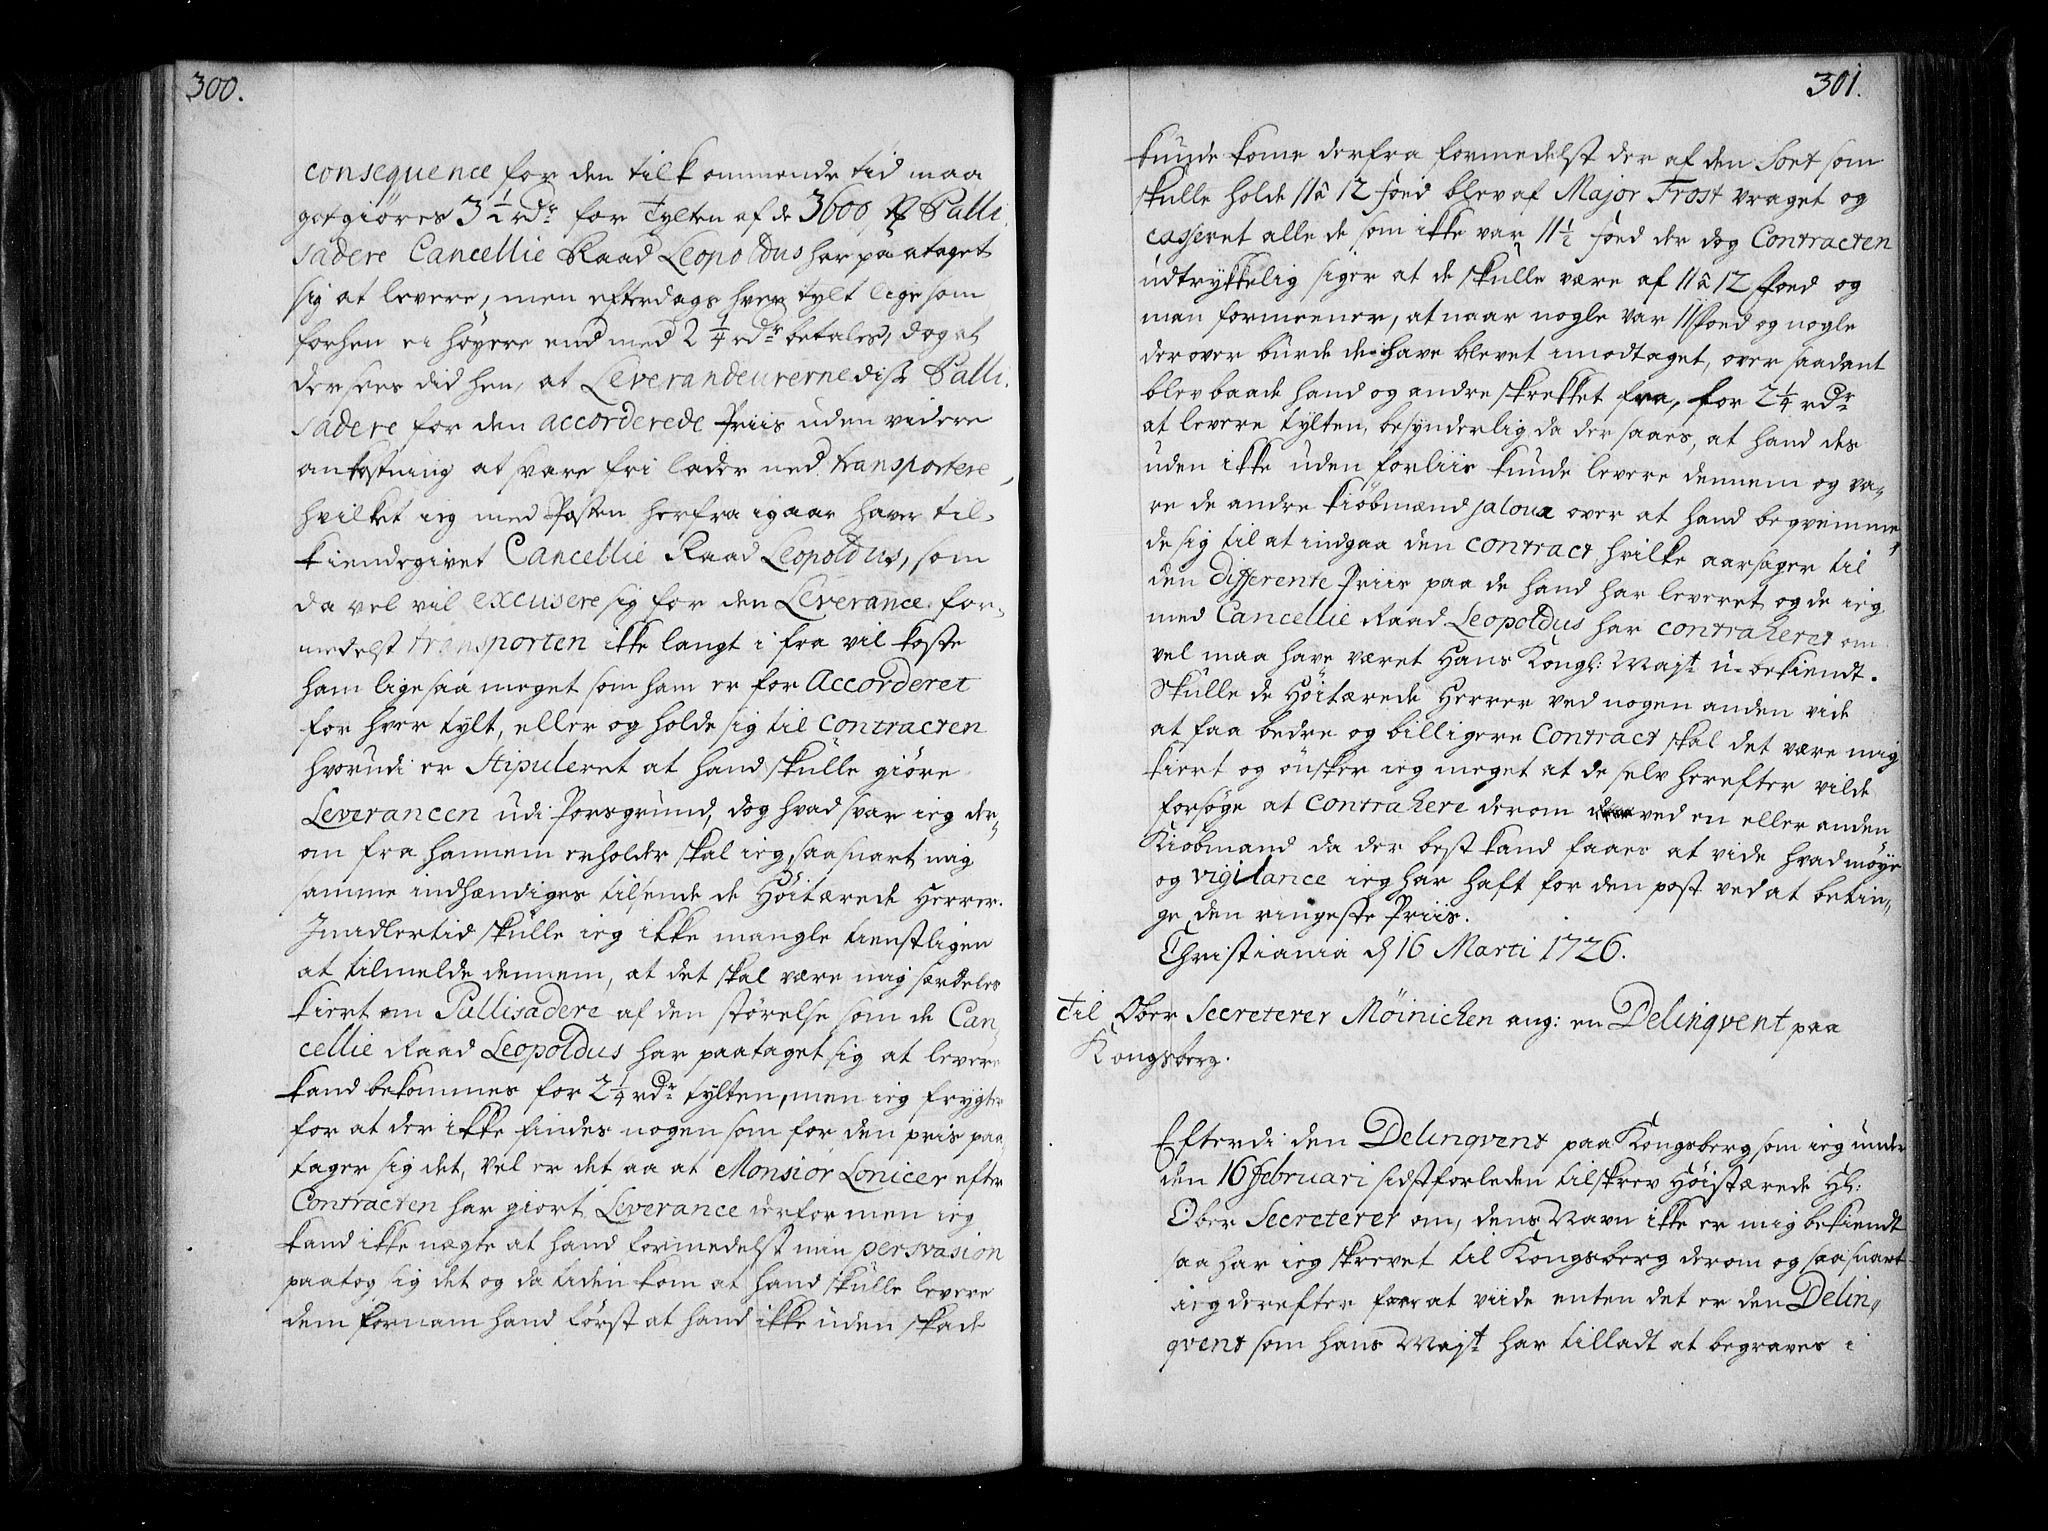 300.
consequence for den tilkommende tid maa
gotgiøres 3½ rdr for Tylten af de 3600 st Palli,
sadere Cancellie Raad Leopoldus har paataget
sig at levere, men efterdags hver tylt lige som
forhen ei höyere end med 2¼ rdr betales, dog at
der sees did hen, at Leverandeurerne disse Palli,
sadere for den accorderede Priis uden videre
ankostning at svare fri lader ned transportere,
hvilket ieg med Posten herfra igaar haver til-
kiendegivet Cancellie Raad Leopoldus, som
da vel vil excusere sig for den Leverance for-
medelst transporten ikke langt i fra vil koste
ham lige saa meget som ham er for Accorderet
for hver tylt, eller og holde sig til Contracten
hvorudi er Stipuleret at hand skulle giøre
Leverancen udi Porsgrund, dog hvad svar ieg der-
om fra hannem erholder skal ieg, saa snart mig
samme indhændiges tilsende de Höitærede Herrer.
Imidlertid skulle ieg ikke mangle tienstligen
at tilmelde dennem, at det skal være mig særdeles
kiert om Pallisadere af den störelse som de Can,
cellie Raad Leopoldus har paataget sig at levere
kand bekommes for 2¼ rdr tylten, men ieg frygter
for at der ikke findes nogen som for den pris paa,
tager sig det, vel er det saa at Monsior Lonicer efter
Contracten har giort Leverance derfor men ieg
kand ikke nægte at hand formedelst min persvasion
paatog sig det og da tiden kom at hand skulle levere
dem fornam hand först at hand ikke uden skade
301.
kunde kome derfra formedelst der af den Sort som
skulle holde 11 â 12 foed blev af Major Frost vraget og
casseret alle de som ikke var 11½ foed der dog Contracten
udtrykkelig siger at de skulle være af 11 â 12 foed og
man formeener, at naar nogle var 11 foed og nogle
derover burde de have blevet imodtaget, over saadant
blev baade hand og andre skrekket fra, for 2¼ rdr
at levere tylten, besynderlig da der saaes, at hand des
uden ikke uden forliis kunde levere dennem og va-
re de andre kiöbmænd jaloux over at hand beqvemme,
de sig til at indgaa den contract hvilke aarsager til
den differente Priis paa de hand har leveret og de ieg
med Cancellie Raad Leopoldus har contraheret om
vel maa have været Hans Kongl: Majt u-bekiendt.
Skulle de Höitærede Herrer ved nogen anden vide
at faa bedre og billigere Contract skal det være mig
kiert og önsker ieg meget at de selv herefter vilde
forsöge at contrahere derom ved en eller anden
Kiöbmand da der best kand faaes at vide hvad möye
og vigilance ieg har haft for den post ved at betin-
ge den ringeste Priis.
Christiania d 16 Marti 1726.
Til Ober Secreterer Möinichen ang: en Delinqvent paa
Kongsberg.
Efterdi den Delinqvent paa Kongsberg som ieg under
den 16 februari sidstforleden tilskrev Höistærede Hr:
Ober Secreterer om, dens Navn ikke er mig bekiendt
saa har ieg skrevet til Kongsberg derom og saa snart
ieg derefter faar at viide enten det er den Delin,
qvent som hans Majt har tilladt at begraves i